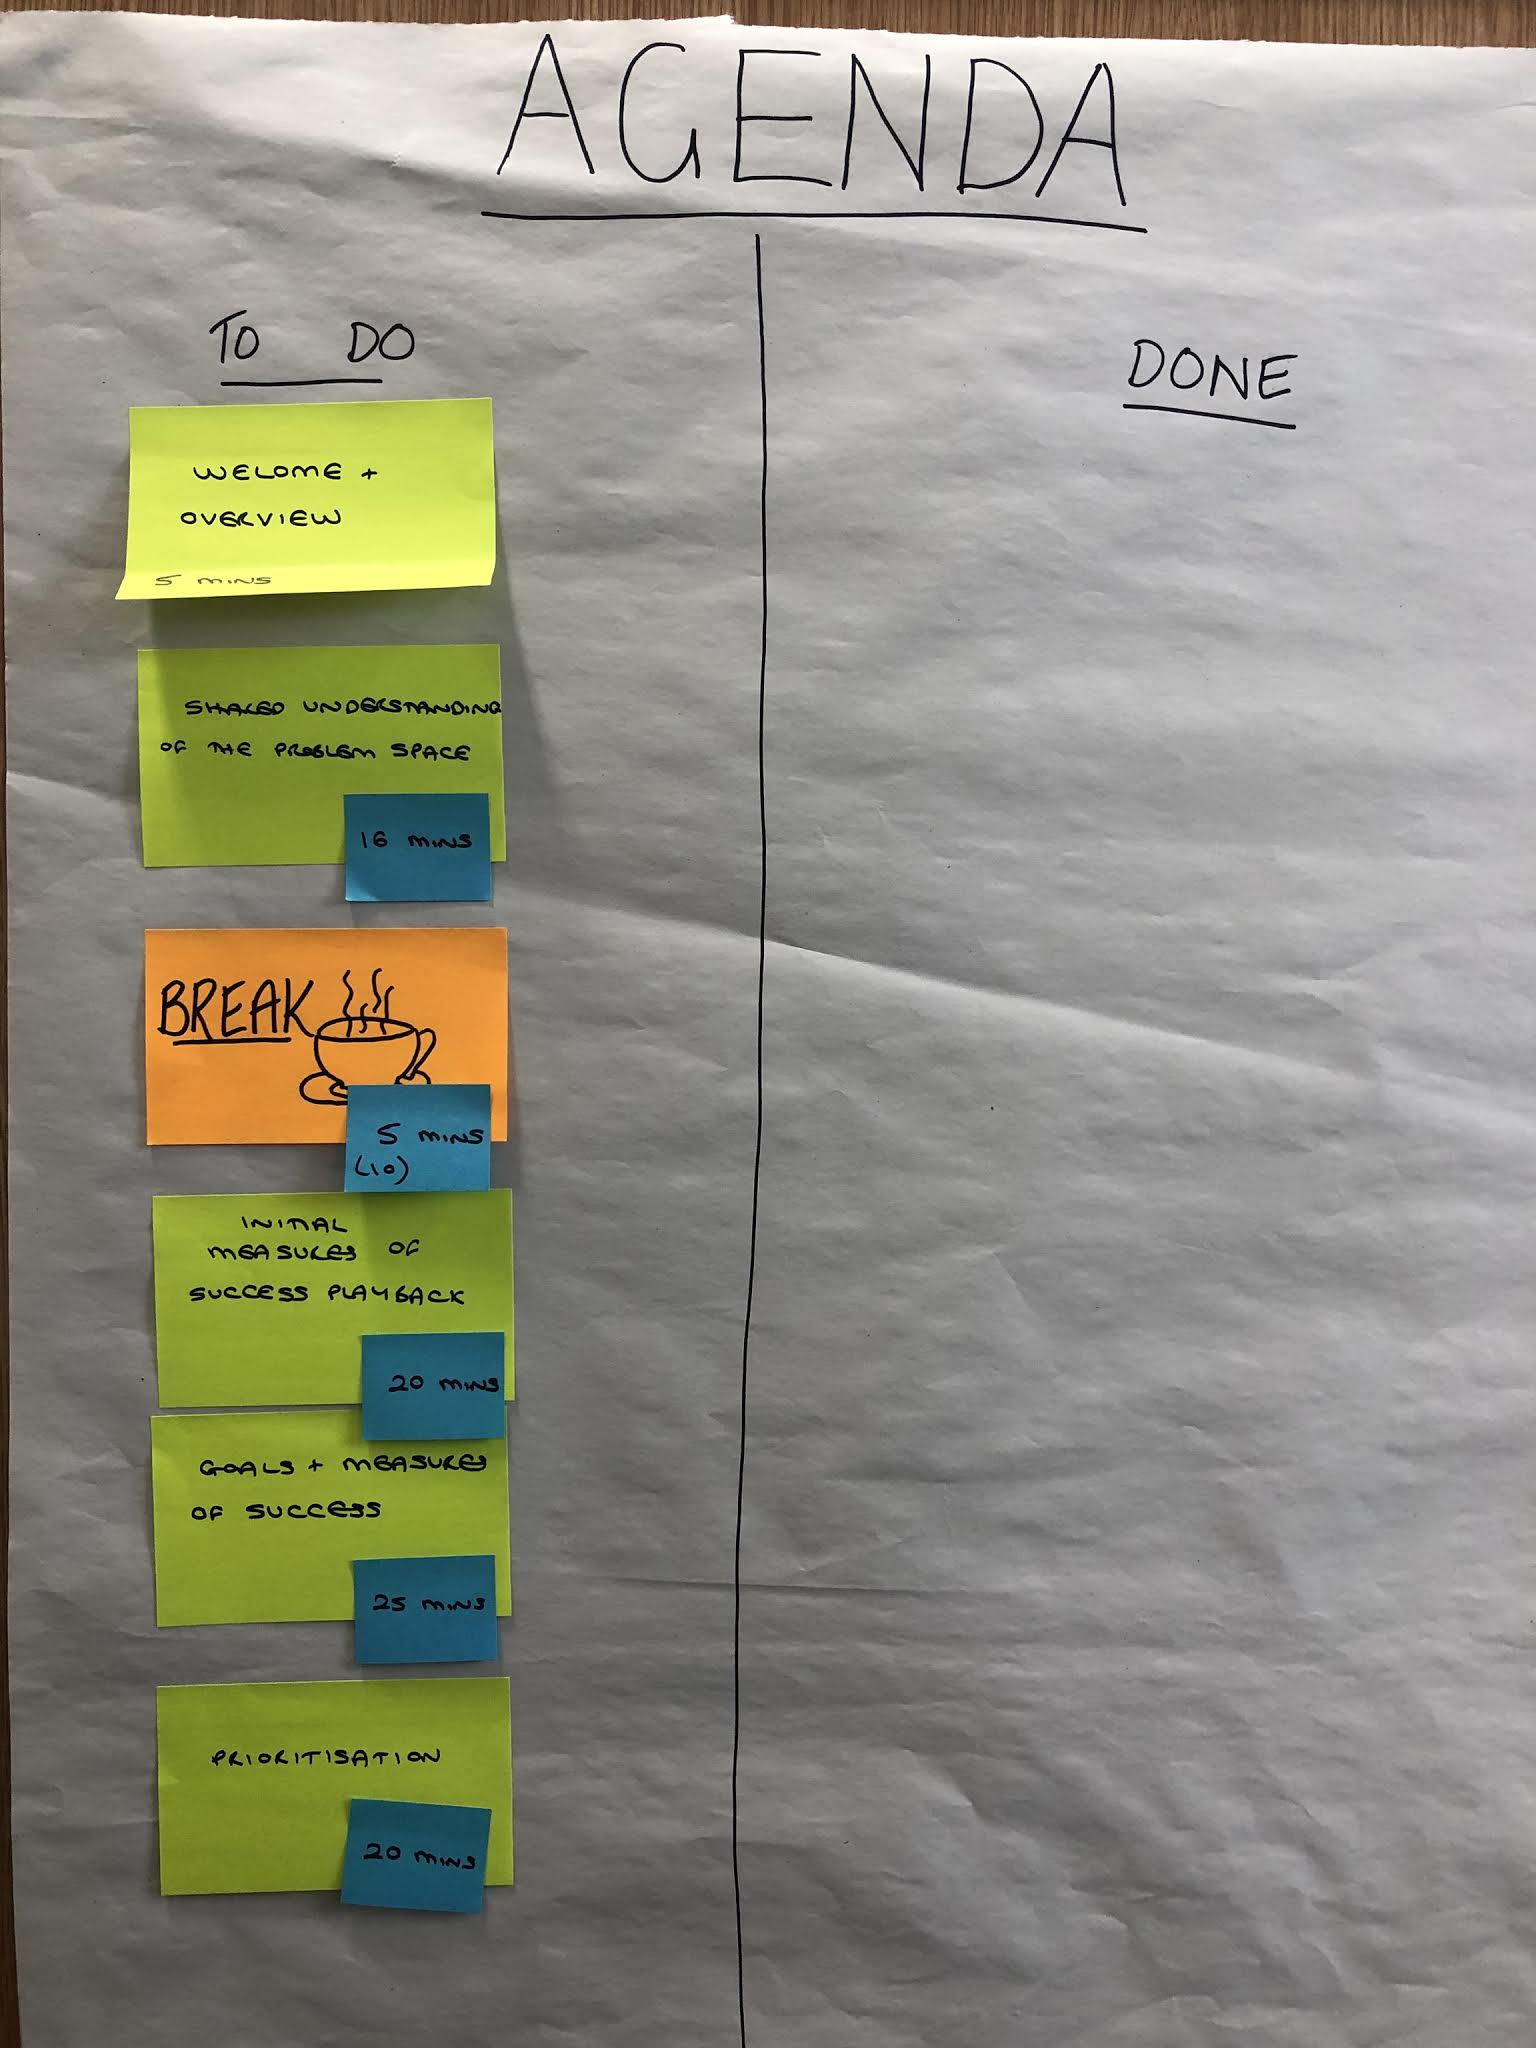 AGENDA
TO DO
DONE
WELOME +
OVERVIEW
5 MINS
SHARED UNDERSTANDING
OF THE PROBLEM SPACE
16 MINS
BREAK
5 MINS
(10)
INITIAL
MEASURES OF
SUCCESS PLAYBACK
20 MINS
GOALS + MEASURES
OF SUCCESS
25 MINS
PRIORITISATION
20 MINS